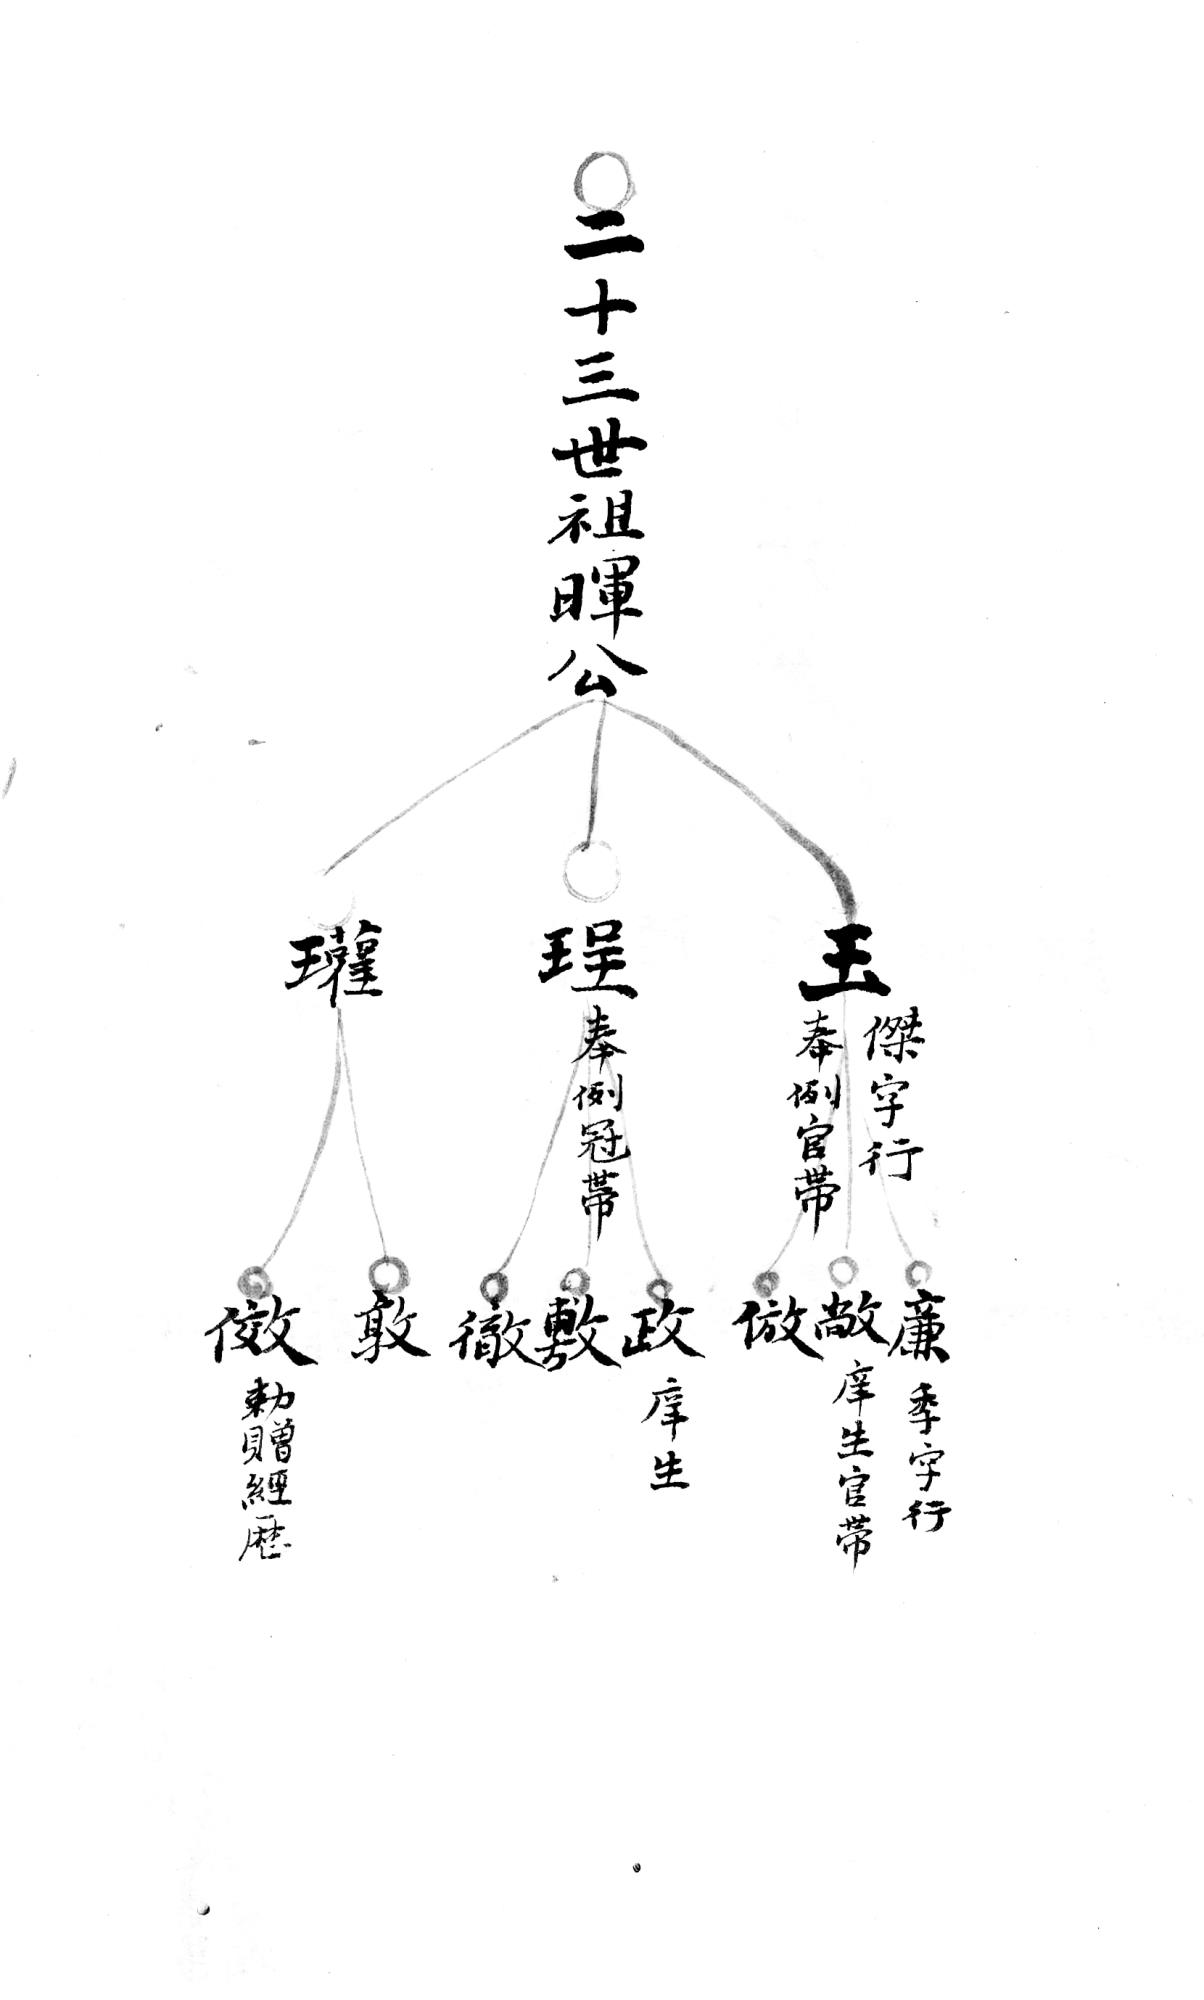 二十三世祖暉公
玉
傑字行
奉例官帶
珵
奉例冠帶
瓘
廉
季字行
敞
庠生官帶
倣
政
庠生
敷
徹
敦
傚
勅贈經歷